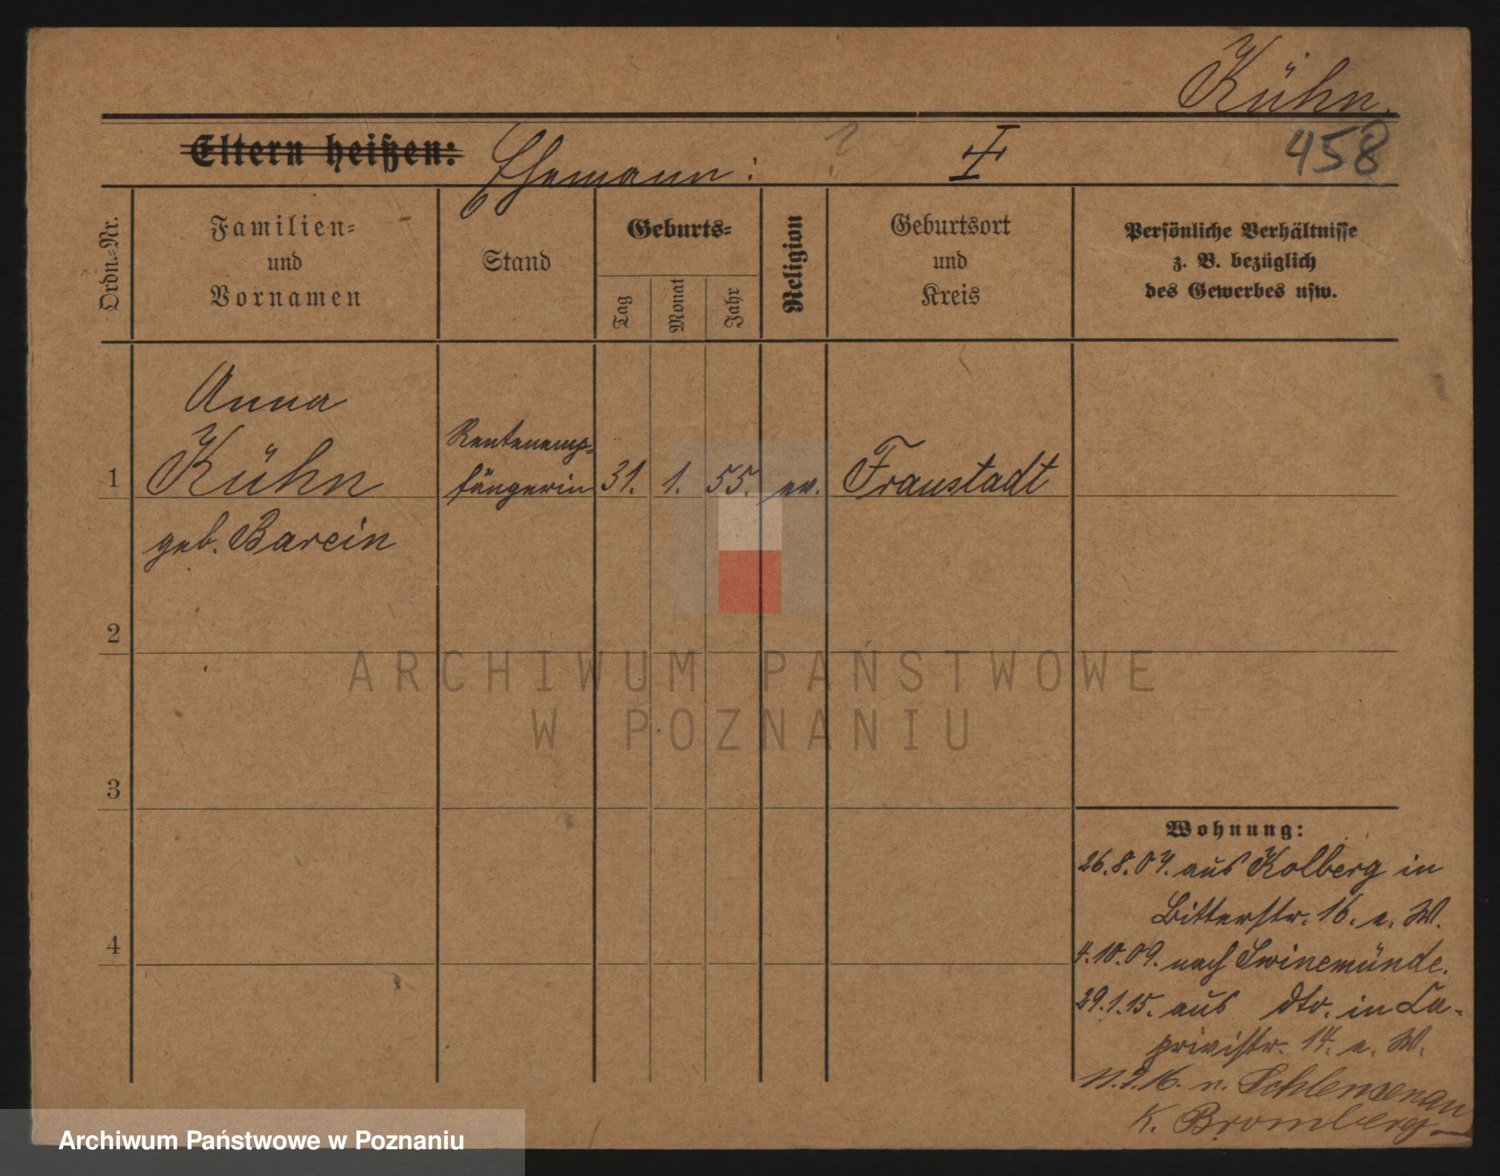 Kühn.
Eltern heißen: Ehemann: ? ‡
458
Ordn.-Nr.
Familien-
und
Vornamen
Stand
Geburts-
Tag
Monat
Jahr
Religion
Geburtsort
und
Kreis
Persönliche Verhältnisse
z. B. bezüglich
des Gewerbes usw.
Anna
1 Kühn Rentenemp-
fängerin 31. 1. 55. ev. Fraustadt
geb. Barein
2
ARCHIWUM PAŃSTWOWE
W POZNANIU
3
Wohnung:
26.8.07. aus Kolberg in
Bitterstr. 16. e. W.
4
4.10.09. nach Swinemünde.
29.1.15. aus dto. in Ca-
privistr. 14. e. W.
11.9.16. n. Schleusenau
K. Bromberg
Archiwum Państwowe w Poznaniu